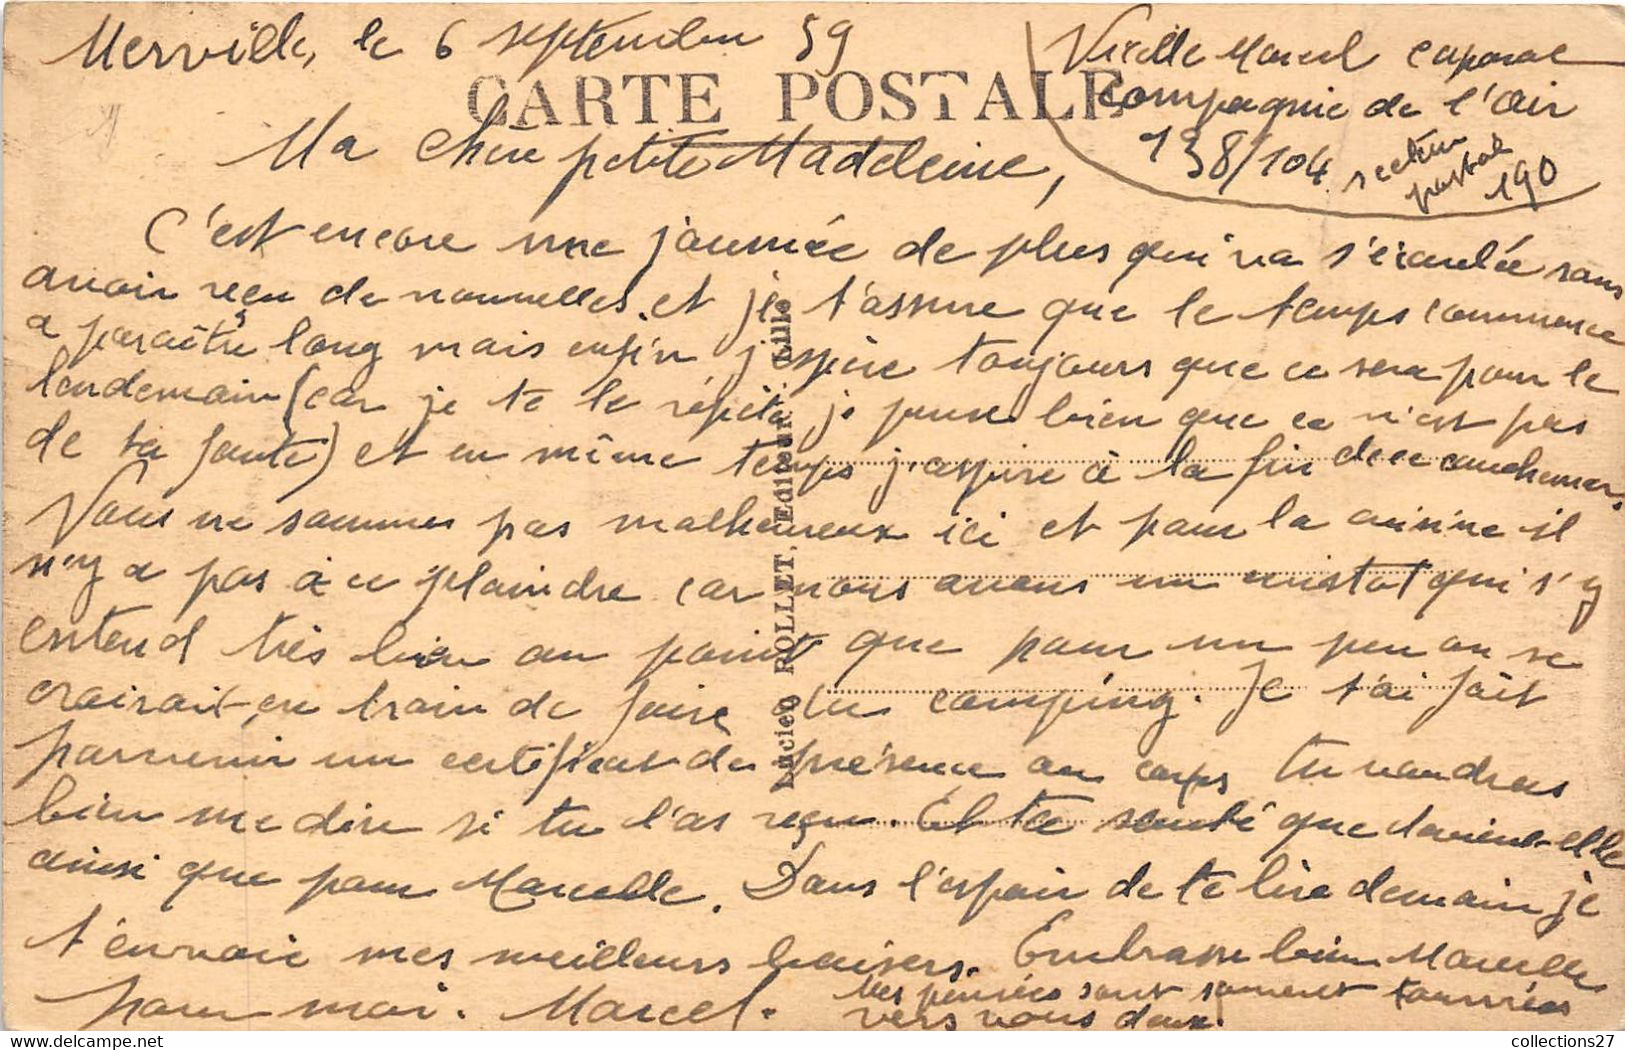 Merville, le 6 septembre 39
CARTE POSTALE
Marcel caporal
compagnie de l'air
138/104 secteur
postal
190
Ma chère petite Madeleine,
C'est encore une journée de plus qui va s'écoulée sans
avoir reçu de nouvelles, et je t'assure que le temps commence
a paraître long mais enfin j'espère toujours que ce sera pour le
lendemain (car je te le répète, je pense bien que ce n'est pas
de ta faute) et en même temps j'aspire à la fin de ce cauchemar.
Nous ne sommes pas malheureux ici et pour la cuisine il
n'y a pas à ce plaindre car nous avons un cuistot qui s'y
entend très bien au point que pour un peu on se
croirait en train de faire du camping. Je t'ai fait
parvenir un certificat de présence au corps tu voudras
bien me dire si tu l'as reçu. Et ta santé que devient-elle
ainsi que pour Marcelle. Dans l'espoir de te lire demain je
t'envoie mes meilleurs baisers. Embrasse bien Marcelle
pour moi. Marcel.
Mes pensées sont souvent tournées
vers vous deux.
Lucien ROLLET, Editeur, Lille
collections27